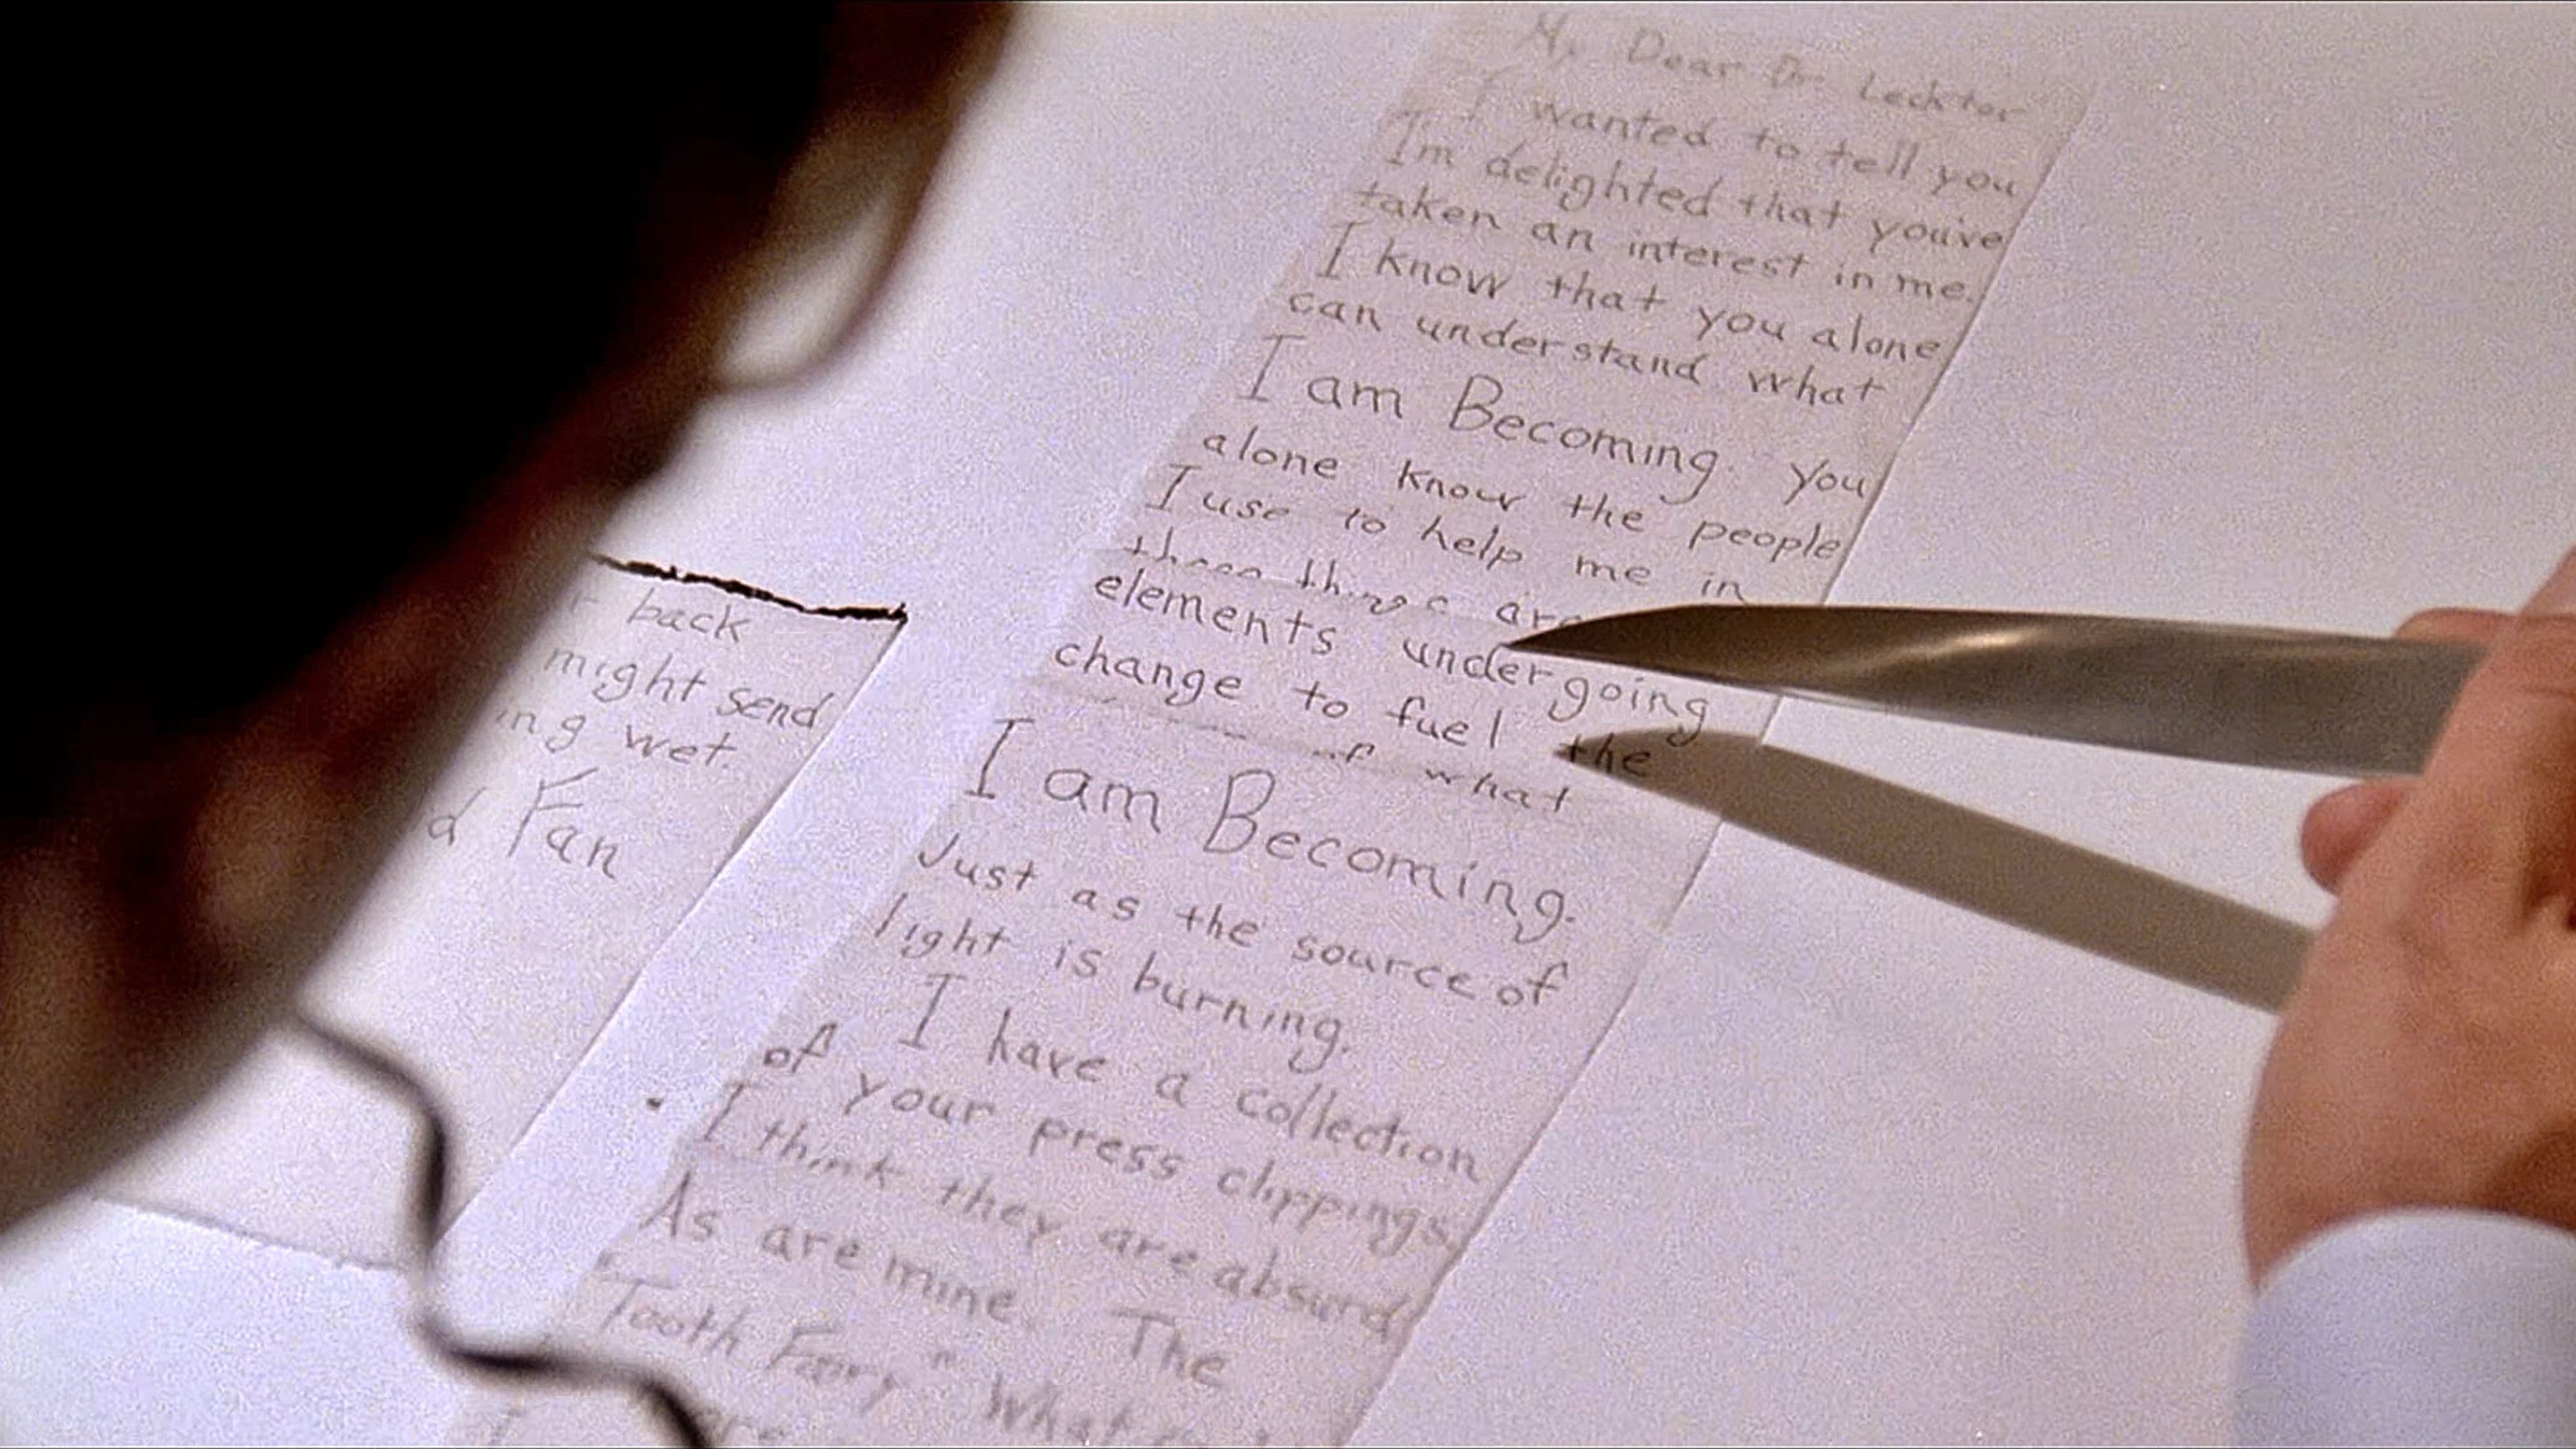 My Dear Dr Lecktor
I wanted to tell you
I'm delighted that you've
taken an interest in me.
I know that you alone
can understand what
I am Becoming. You
alone know the people
I use to help me in
these things are
elements undergoing
change to fuel the
of what
I am Becoming.
Just as the source of
light is burning.
I have a collection
of your press clippings.
I think they are absurd
As are mine. The
"Tooth Fairy" What
back
might send
ing wet.
d Fan